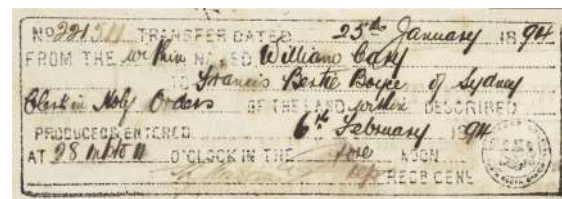 No 221511 TRANSFER DATED 25th January 1894
FROM THE within NAMED William Cary
TO Francis Bertie Boyce of Sydney
Clerk in Holy Orders OF THE LAND within DESCRIBED
PRODUCED & ENTERED 6th February 1894
AT 28 mts to 11 O'CLOCK IN THE fore NOON
REGR GENL